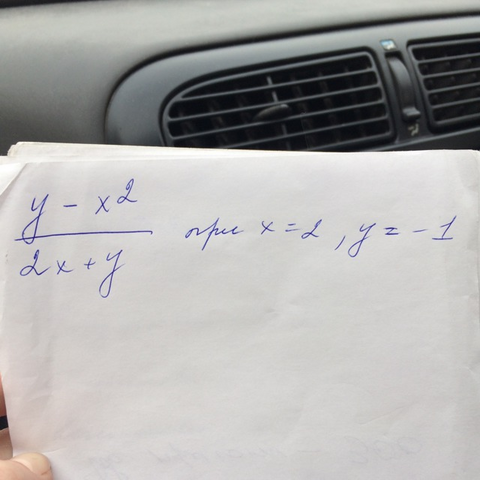 y - x2
2x + y при x = 2, y = -1